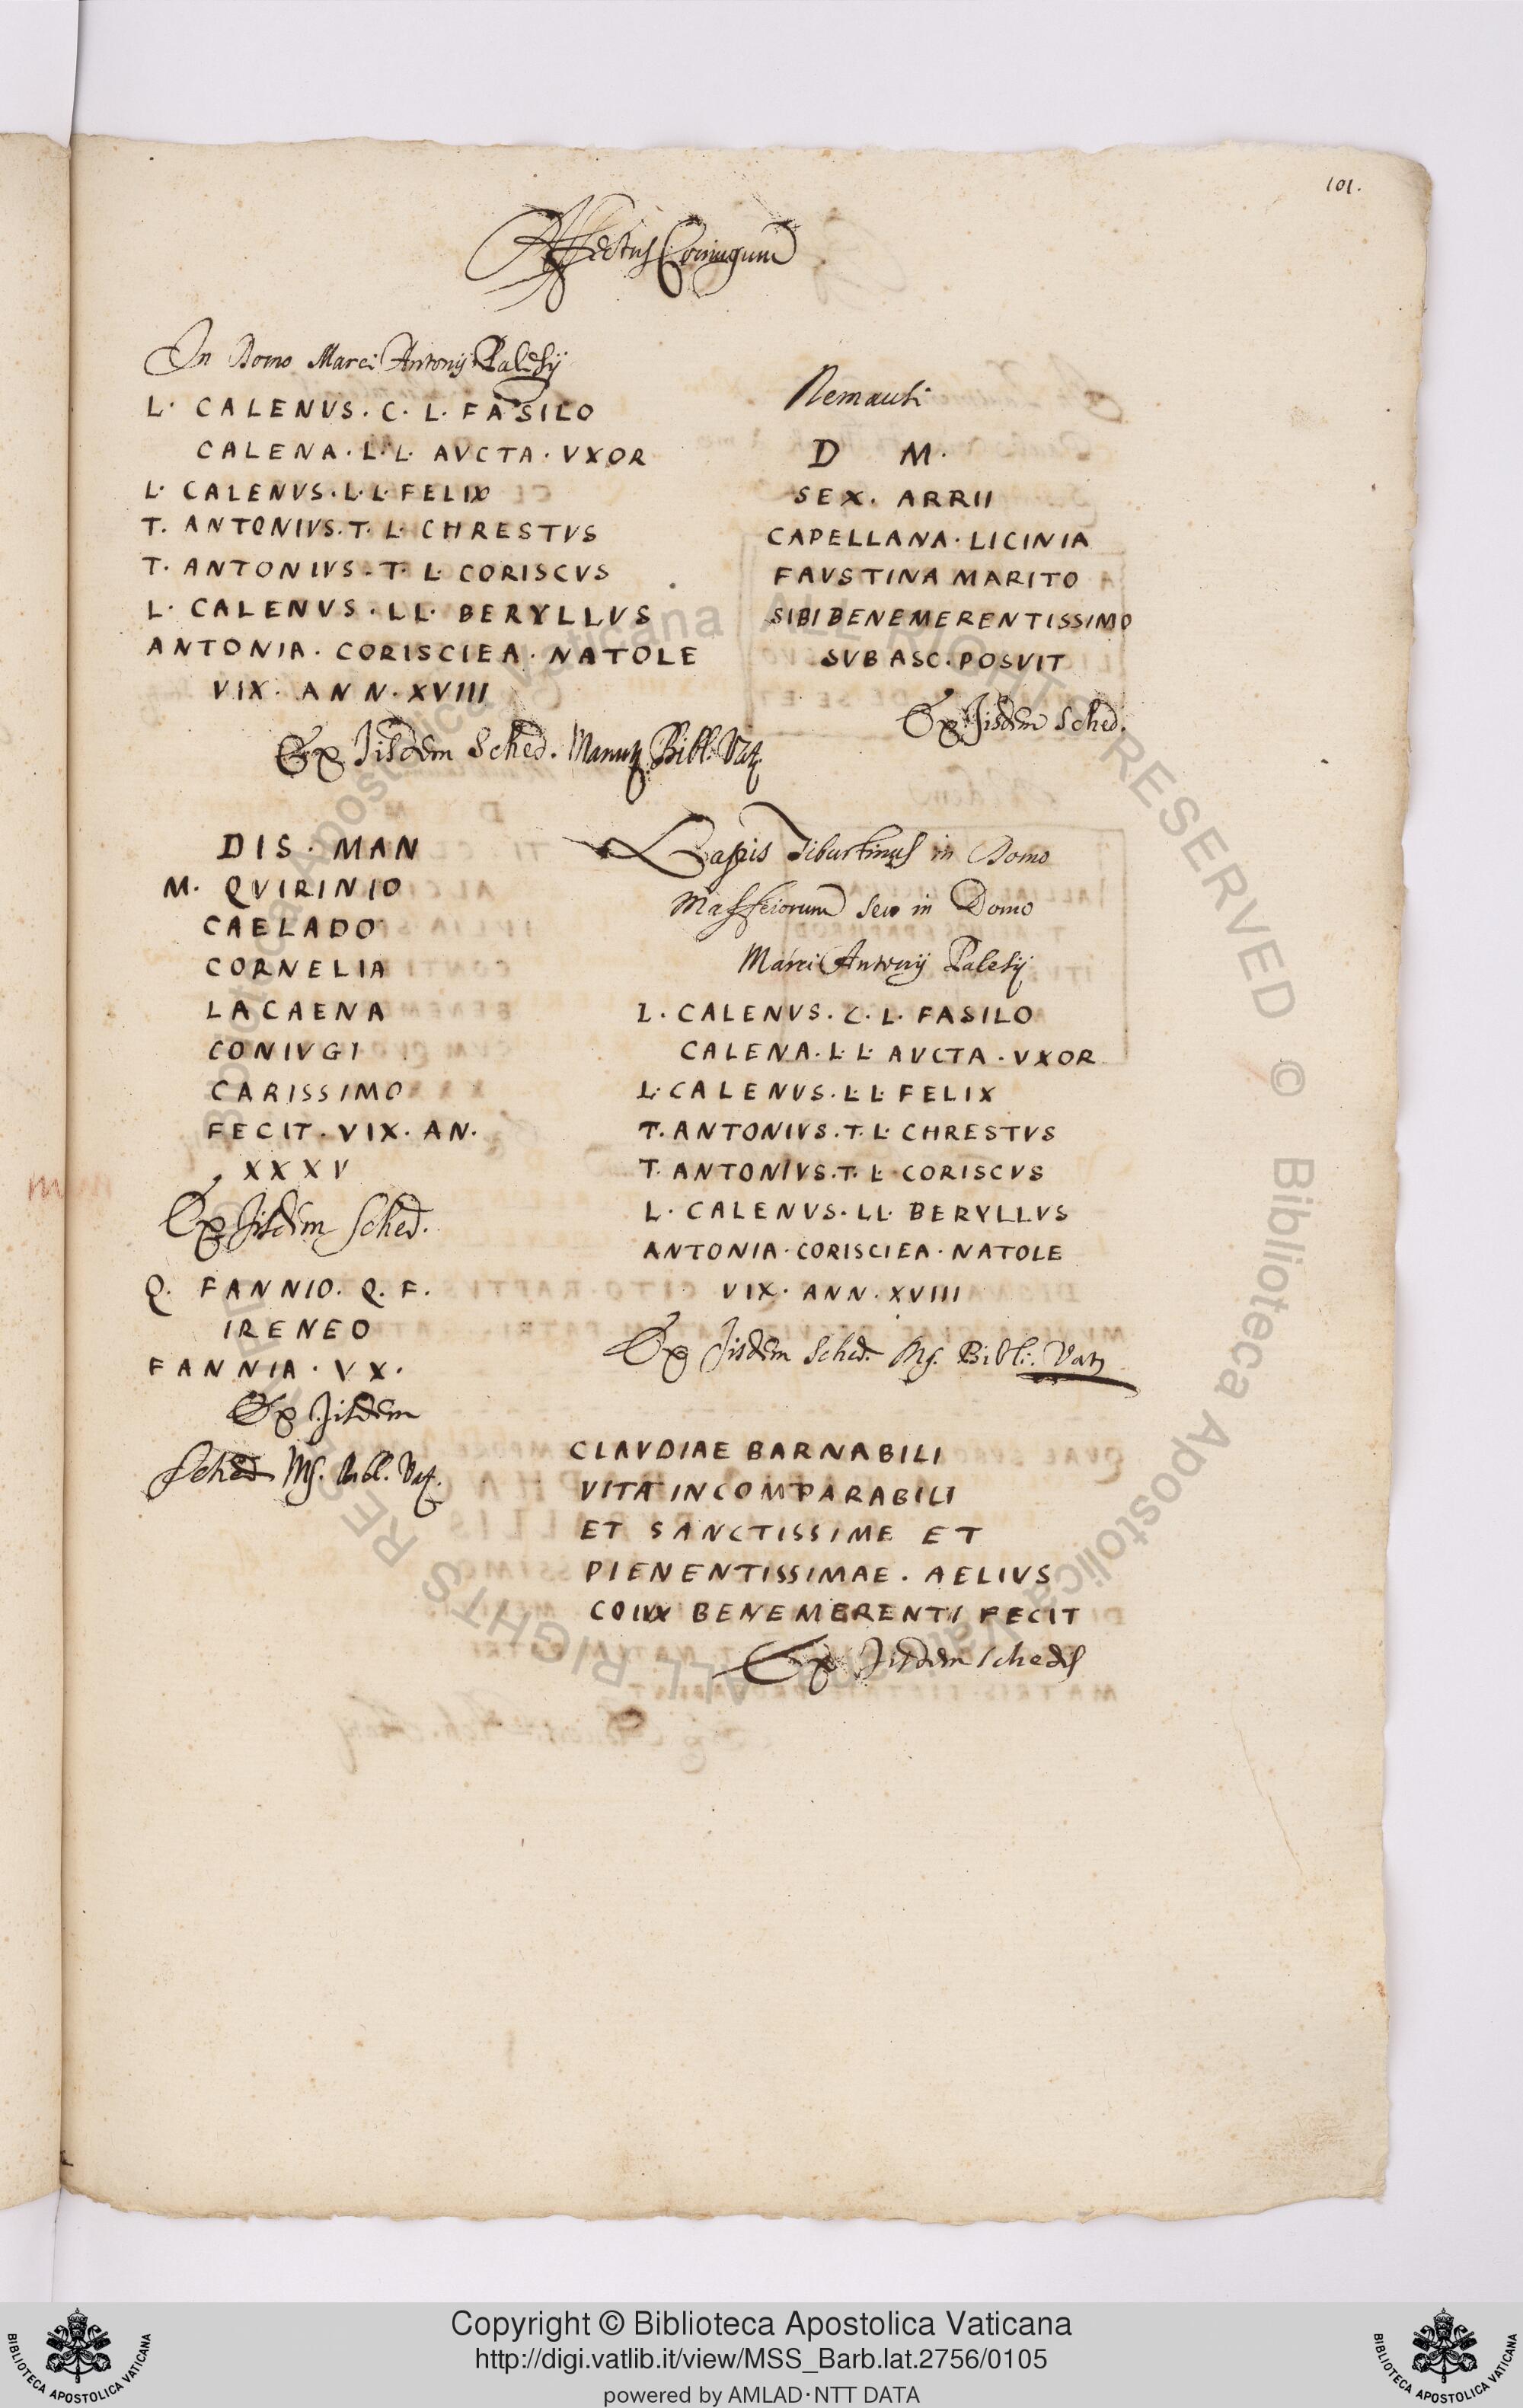 101.
Affectus Coniugum
In Domo Marci Antonij Palesij
L. CALENVS. C. L. FASILO
CALENA. L. L. AVCTA. VXOR
L. CALENVS. L. L. FELIX
T. ANTONIVS. T. L. CHRESTVS
T. ANTONIVS. T. L. CORISCVS
L. CALENVS. LL. BERYLLVS
ANTONIA. CORISCIEA. NATOLE
VIX. ANN. XVIII
Ex Jisdem Sched. Manutz. Bibl. Vat.
Nemausi
D M.
SEX. ARRII
CAPELLANA. LICINIA
FAVSTINA MARITO
SIBI BENEMERENTISSIMO
SVB ASC. POSVIT
Ex Jisdem Sched.
DIS. MAN
M. QVIRINIO
CAELADO
CORNELIA
LACAENA
CONIVGI
CARISSIMO
FECIT. VIX. AN.
XXXV
Ex Jisdem Sched.
Q. FANNIO. Q. F.
IRENEO
FANNIA. VX.
Ex Jisdem
Sched Ms. Bibl. Vat.
Lapis Tiburtinus in Domo
Maffeiorum seu in Domo
Marci Antonij Palesij
L. CALENVS. C. L. FASILO
CALENA. L. L. AVCTA. VXOR
L. CALENVS. L. L. FELIX
T. ANTONIVS. T. L. CHRESTVS
T. ANTONIVS. T. L. CORISCVS
L. CALENVS. LL. BERYLLVS
ANTONIA. CORISCIEA. NATOLE
VIX. ANN. XVIII
Ex Jisdem Sched. Ms. Bibli. Vat
CLAVDIAE BARNABILI
VITA INCOMPARABILI
ET SANCTISSIME ET
PIENENTISSIMAE. AELIVS
COIVX BENEMERENTI FECIT
Ex Jisdem schedis
Copyright © Biblioteca Apostolica Vaticana
http://digi.vatlib.it/view/MSS_Barb.lat.2756/0105
powered by AMLAD·NTT DATA
BIBLIOTECA APOSTOLICA VATICANA
BIBLIOTECA APOSTOLICA VATICANA